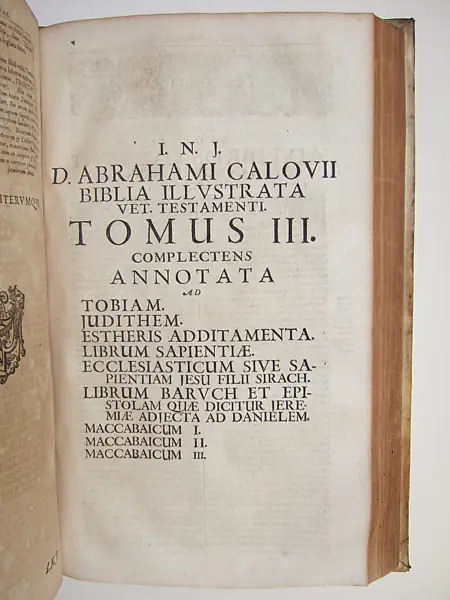 I. N. J.
D. ABRAHAMI CALOVII
BIBLIA ILLVSTRATA
VET. TESTAMENTI.
TOMUS III.
COMPLECTENS
ANNOTATA
AD
TOBIAM.
JUDITHEM.
ESTHERIS ADDITAMENTA.
LIBRUM SAPIENTIÆ.
ECCLESIASTICUM SIVE SA-
PIENTIAM JESU FILII SIRACH.
LIBRUM BARVCH ET EPI-
STOLAM QUÆ DICITUR JERE-
MIÆ ADJECTA AD DANIELEM.
MACCABAICUM I.
MACCABAICUM II.
MACCABAICUM III.